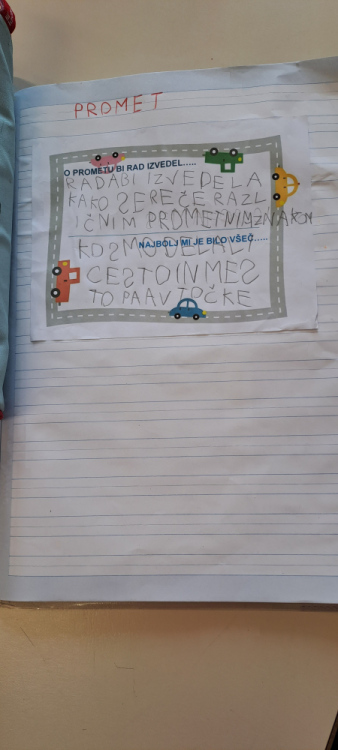 PROMET
O PROMETU BI RAD IZVEDEL.....
RADA BI IZVEDELA
KAKO SE REČE RAZL
IČNIM PROMETNIM ZNAKOM
NAJBOLJ MI JE BILO VŠEČ.....
KO SMO DELALI
CESTO IN MES
TO PA AVTOČKE